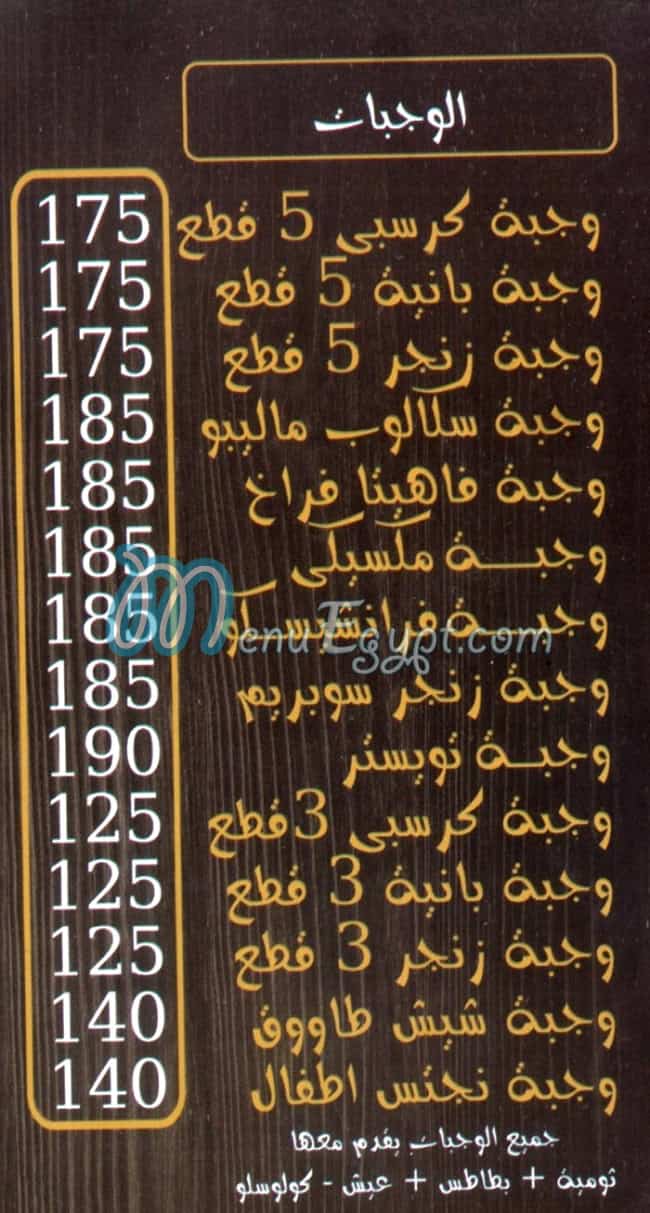 الوجبات
وجبة كرسبى 5 قطع 175
وجبة بانية 5 قطع 175
وجبة زنجر 5 قطع 175
وجبة سلالوب ماليبو 185
وجبة فاهيتا فراخ 185
وجبـــة مكسيكى 185
وجبـــة فرانشيسكو 185
MenuEgypt.com
وجبة زنجر سوبريم 185
وجبـــة تويستر 190
وجبة كرسبى 3قطع 125
وجبة بانية 3 قطع 125
وجبة زنجر 3 قطع 125
وجبة شيش طاووق 140
وجبة نجتس اطفال 140
جميع الوجبات يقدم معها
ثومية + بطاطس + عيش - كولوسلو